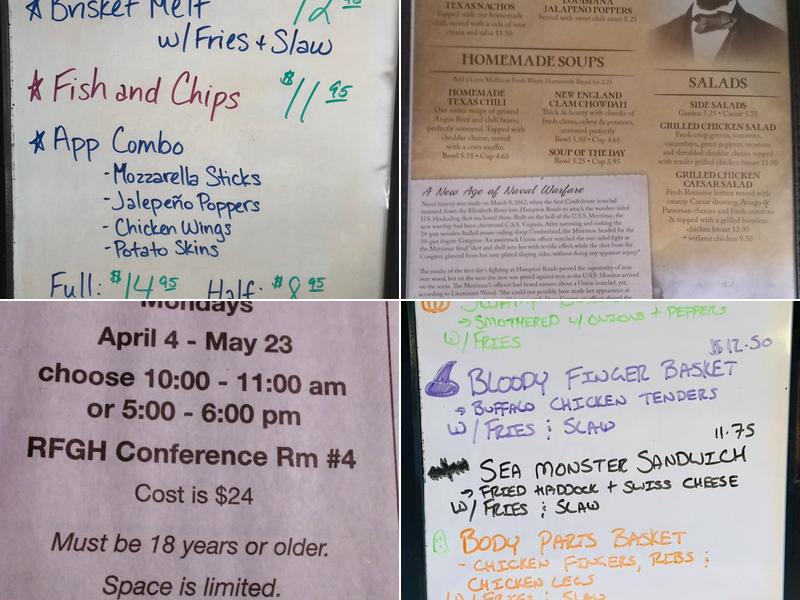 Brisket Melt 12
w/Fries + Slaw
Fish and Chips $11.95
App Combo
- Mozzarella Sticks
- Jalepeño Poppers
- Chicken Wings
- Potato Skins
Full: $14.95 Half: $8.95
TEXAS NACHOS
Topped with our homemade
chili, served with a side of sour
cream and salsa 11.50
LOUISIANA
JALAPENO POPPERS
Served with sweet chili sauce 8.25
HOMEMADE SOUPS
Add a Corn Muffin or Fresh Warm Homemade Bread for 2.25
HOMEMADE
TEXAS CHILI
Our secret recipe of ground
Angus Beef and chili beans,
perfectly seasoned. Topped with
cheddar cheese, served
with a corn muffin.
Bowl 5.75 • Cup 4.65
NEW ENGLAND
CLAM CHOWDAH
Thick & hearty with chunks of
fresh clams, celery & potatoes,
seasoned perfectly
Bowl 5.50 • Cup 4.65
SOUP OF THE DAY
Bowl 5.25 • Cup 3.95
SALADS
SIDE SALADS
Garden 5.25 • Caesar 5.75
GRILLED CHICKEN SALAD
Fresh crisp greens, tomatoes,
cucumbers, green peppers, croutons
and shredded cheddar cheese topped
with tender grilled chicken breast 11.50
GRILLED CHICKEN
CAESAR SALAD
Fresh Romaine lettuce tossed with
creamy Caesar dressing, Asiago &
Parmesan cheeses and fresh croutons
& topped with a grilled boneless
chicken breast 12.95
• without chicken 9.50
A New Age of Naval Warfare
Naval history was made on March 8, 1862, when the first Confederate ironclad
steamed down the Elizabeth River into Hampton Roads to attack the wooden-sided
U.S. blockading fleet anchored there. Built on the hull of the U.S.S. Merrimac, the
new warship had been christened C.S.S. Virginia. After ramming and sinking the
24-gun wooden-hulled steam-sailing sloop Cumberland, the Merrimac headed for the
50-gun frigate Congress. An awestruck Union officer watched the one-sided fight as
the Merrimac fired "shot and shell into her with terrific effect, while the shot from the
Congress glanced from her iron-plated sloping sides, without doing any apparent injury."
The results of the first day's fighting at Hampton Roads proved the superiority of iron
over wood, but on the next day iron was pitted against iron as the U.S.S. Monitor arrived
on the scene. The Merrimac's officers had heard rumors about a Union ironclad, yet,
according to Lieutenant Wood: "She could not possibly have made her appearance at
Mondays
April 4 - May 23
choose 10:00 - 11:00 am
or 5:00 - 6:00 pm
RFGH Conference Rm #4
Cost is $24
Must be 18 years or older.
Space is limited.
→ SMOTHERED W/ ONIONS + PEPPERS
W/ FRIES
$12.50
BLOODY FINGER BASKET
→ BUFFALO CHICKEN TENDERS
W/ FRIES & SLAW
11.75
SEA MONSTER SANDWICH
→ FRIED HADDOCK + SWISS CHEESE
W/ FRIES & SLAW
BODY PARTS BASKET
- CHICKEN FINGERS, RIBS &
CHICKEN LEGS
W/ FRIES & SLAW